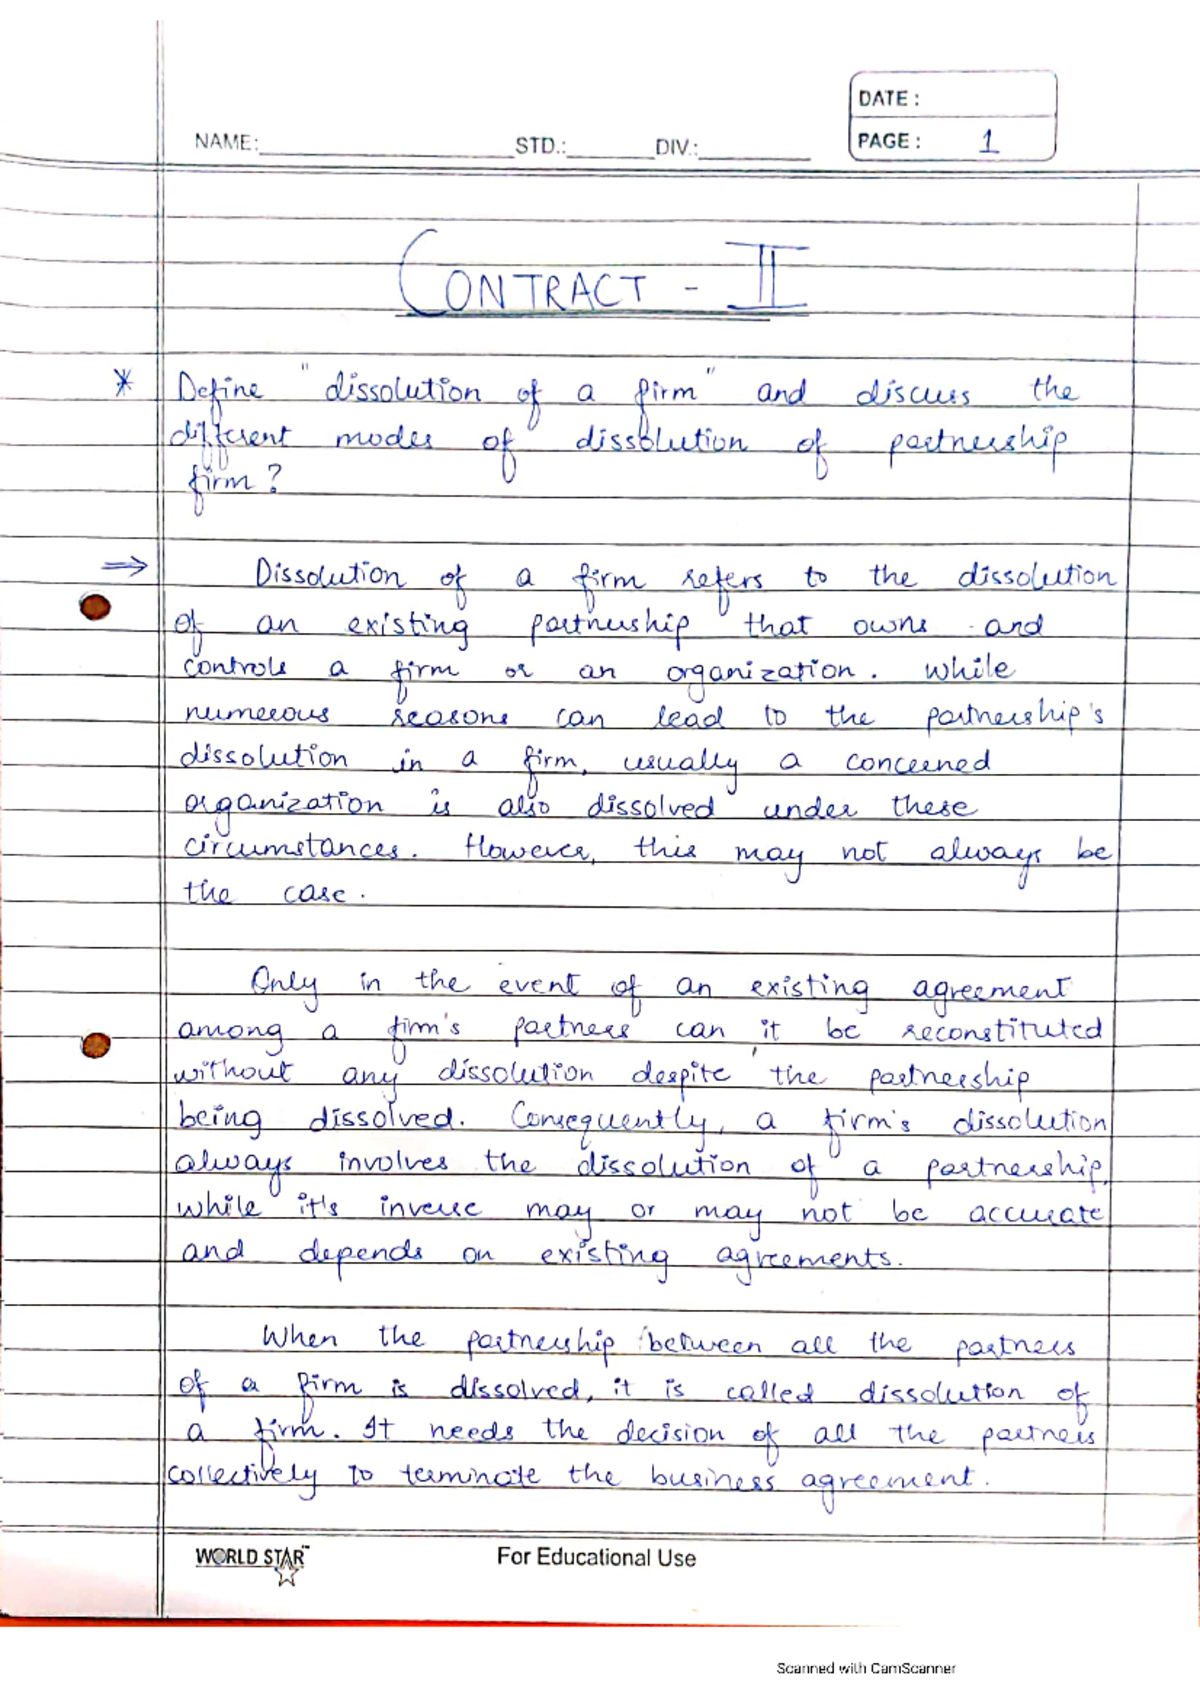 DATE :
NAME: STD.: DIV.: PAGE : 1
CONTRACT - II
* Define "dissolution of a firm" and discuss the
different modes of dissolution of partnership
firm?
⇒ Dissolution of a firm refers to the dissolution
of an existing partnership that owns and
controls a firm or an organization. While
numerous reasons can lead to the partnership's
dissolution in a firm, usually a concerned
organization is also dissolved under these
circumstances. However, this may not always be
the case.
Only in the event of an existing agreement
among a firm's partners can it be reconstituted
without any dissolution despite the partnership
being dissolved. Consequently, a firm's dissolution
always involves the dissolution of a partnership,
while it's inverse may or may not be accurate
and depends on existing agreements.
When the partnership between all the partners
of a firm is dissolved, it is called dissolution of
a firm. It needs the decision of all the partners
collectively to terminate the business agreement.
WORLD STAR™ For Educational Use
Scanned with CamScanner